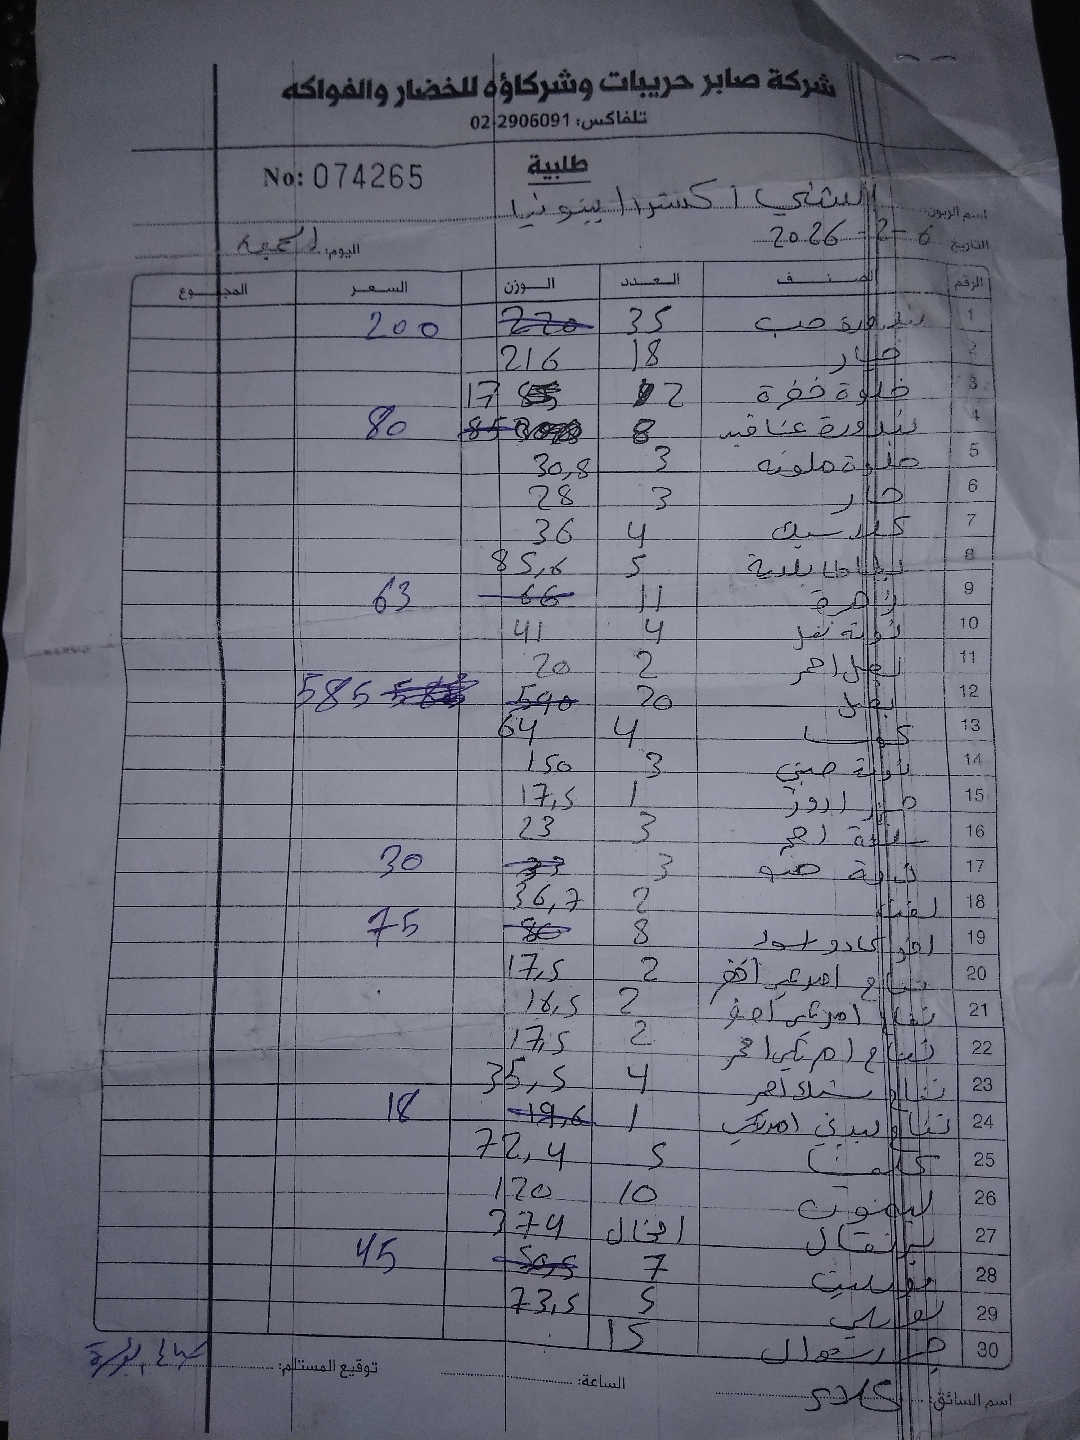 شركة صابر حريبات وشركاؤه للخضار والفواكه
تلفاكس: 02-2906091
طلبية
No: 074265
اسم الزبون: اكسترا
التاريخ 6-2-2026
اليوم: الجمعة
الرقم الصنف العدد الوزن السعر المجموع
1 بندورة حب 35 220 200
2 خيار 18 216
3 2 17
4 بندورة عناقيد 8 80
5 ملونه 3 30,8
6 حار 3 28
7 كلاسيك 4 36
8 بطاطا بلدية 5 85,6
9 زهرة 11 66 63
10 4 41
11 بصل احمر 2 20
12 بصل 20 590 585
13 كوسا 4 64
14 3 150
15 1 17,5
16 3 23
17 3 33 30
18 لفت 2 36,7
19 افوكادو اسود 8 80 75
20 تفاح امريكي اخضر 2 17,5
21 تفاح امريكي اصفر 2 16,5
22 تفاح امريكي احمر 2 17,5
23 تفاح احمر 4 35,5
24 تفاح امريكي 1 19,6 18
25 5 72,4
26 ليمون 10 120
27 برتقال 374
28 7 50,5 45
29 5 73,5
30 15
توقيع المستلم:
الساعة:
اسم السائق: